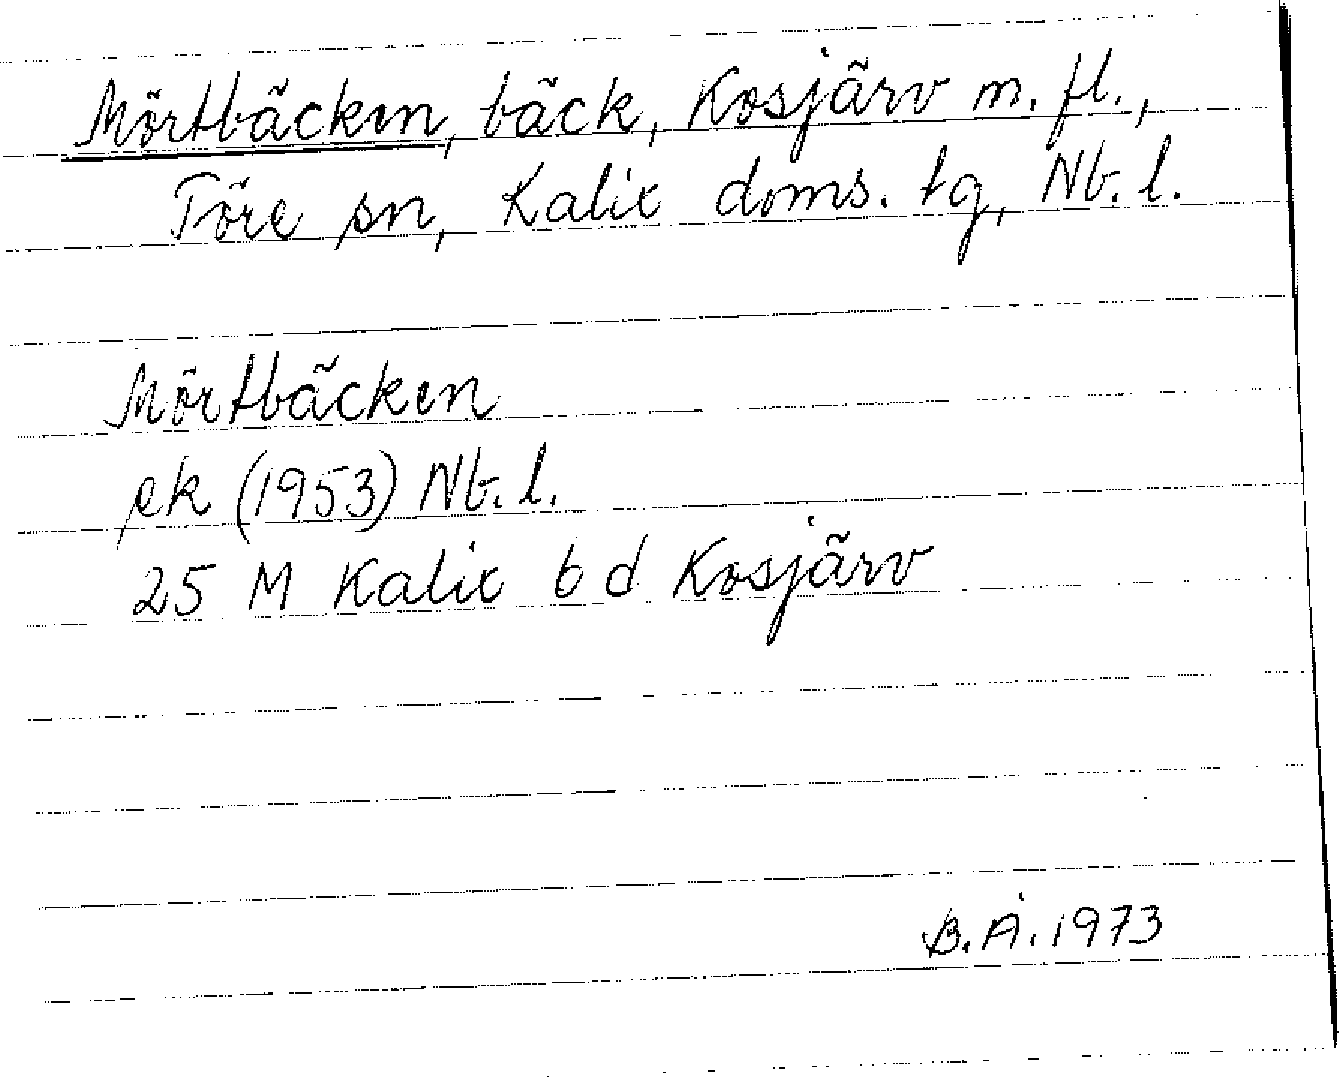 Mörtbäcken, bäck, Kosjärv m. fl.,
Töre sn, Kalix doms. tg, Nb. l.
Mörtbäcken
ek (1953) Nb. l.
25 M Kalix 6 d Kosjärv
B. Å. 1973